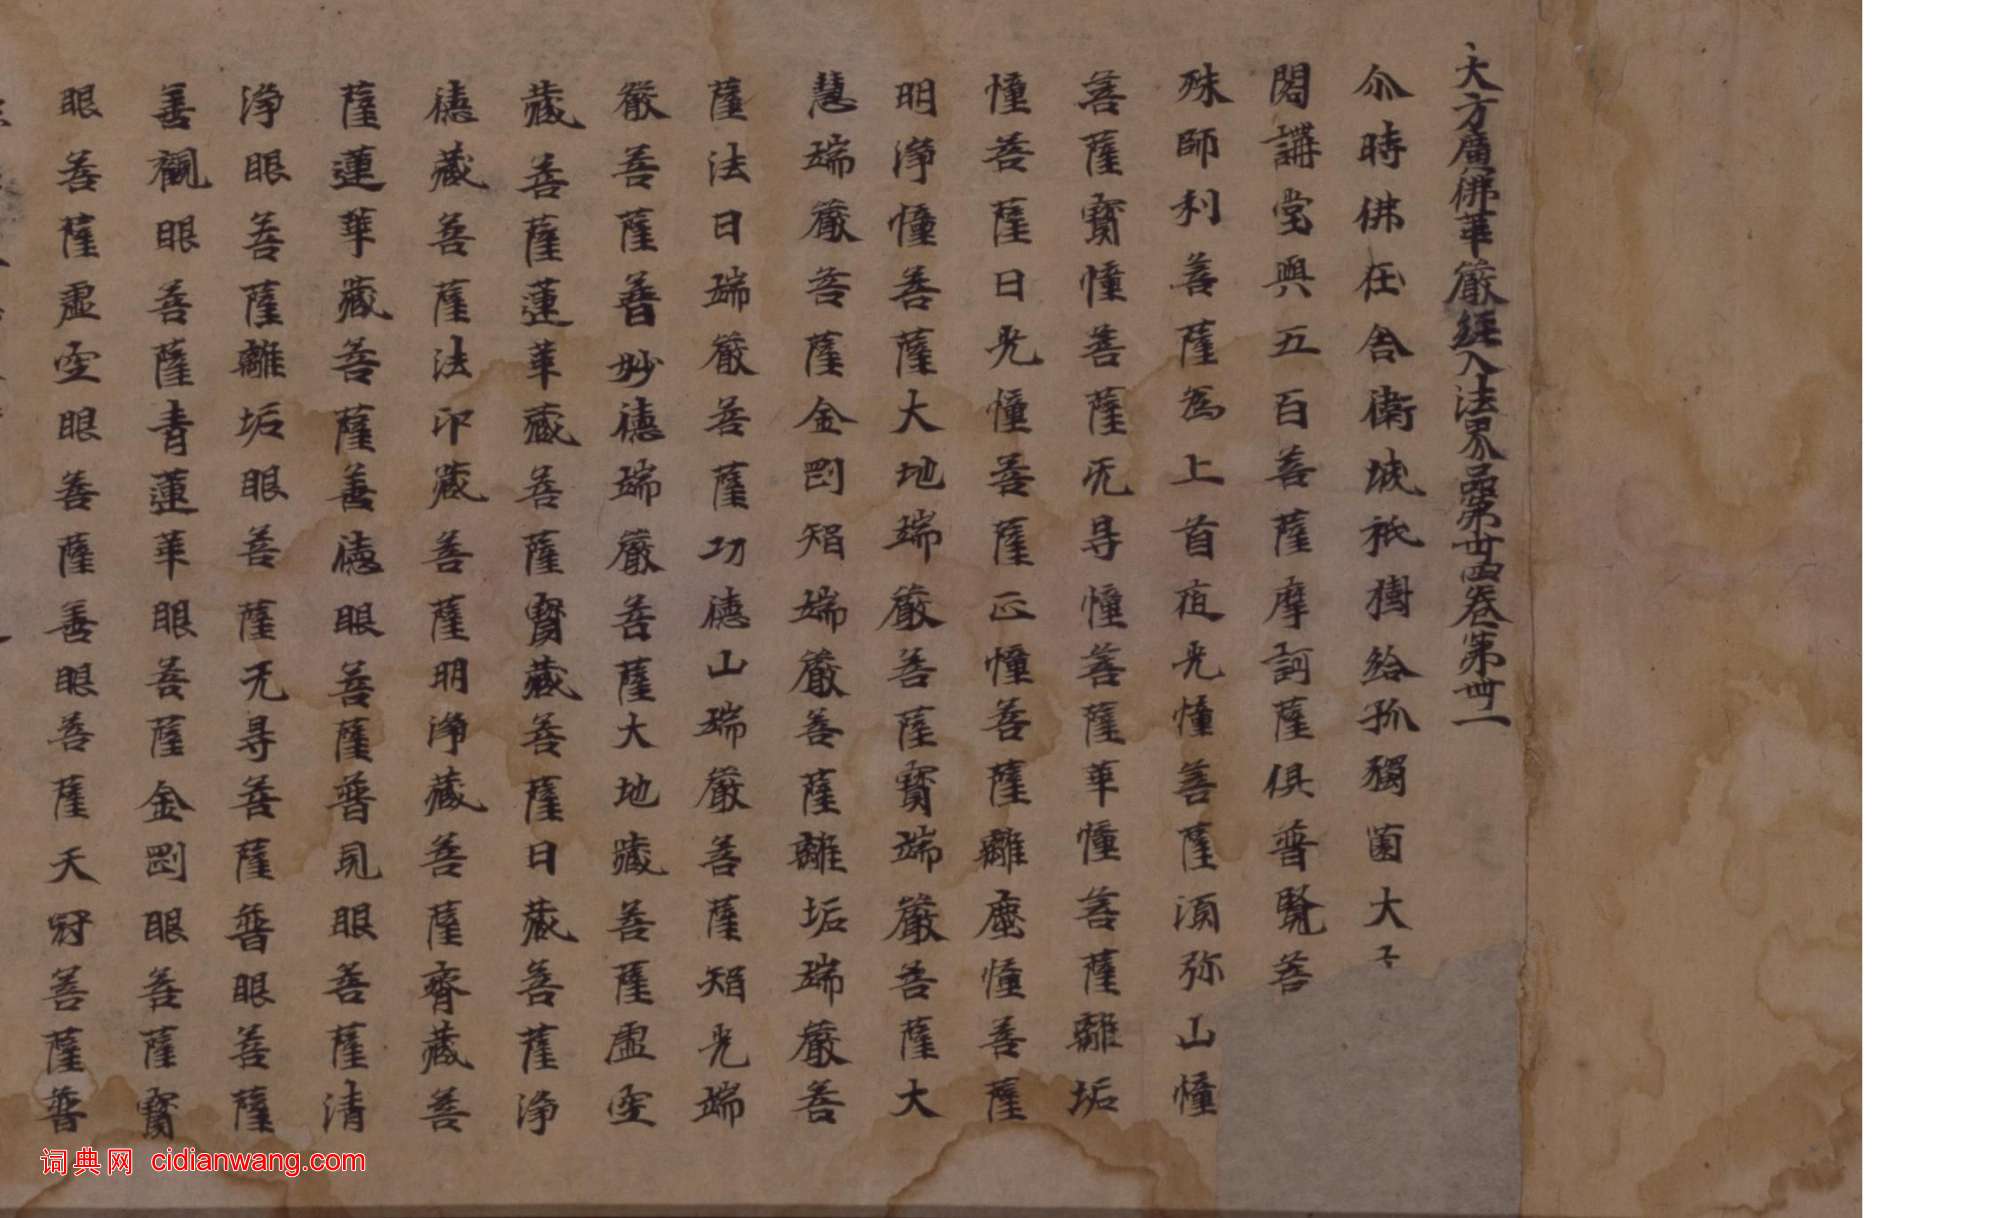 大方廣佛華嚴經入法界品第卅四卷第卌一
尒時佛在舍衛城祇樹給孤獨園大
閣講堂與五百菩薩摩訶薩俱普賢菩
殊師利菩薩為上首夜光憧菩薩須弥山憧
菩薩寳憧菩薩无㝵憧菩薩華憧菩薩離垢
憧菩薩日光憧菩薩正憧菩薩離塵憧菩薩
明淨憧菩薩大地端嚴菩薩寳端嚴菩薩大
慧端嚴菩薩金剛智端嚴菩薩離垢端嚴菩
薩法日端嚴菩薩功德山端嚴菩薩智光端
嚴菩薩普妙德端嚴菩薩大地藏菩薩虛空
藏菩薩蓮華藏菩薩寳藏菩薩日藏菩薩淨
德藏菩薩法印藏菩薩明淨藏菩薩齊藏菩
薩蓮華藏菩薩善德眼菩薩普見眼菩薩清
淨眼菩薩離垢眼菩薩无㝵菩薩普眼菩薩
善觀眼菩薩青蓮華眼菩薩金剛眼菩薩寳
眼菩薩虛空眼菩薩善眼菩薩天冠菩薩普
词典网 cidianwang.com